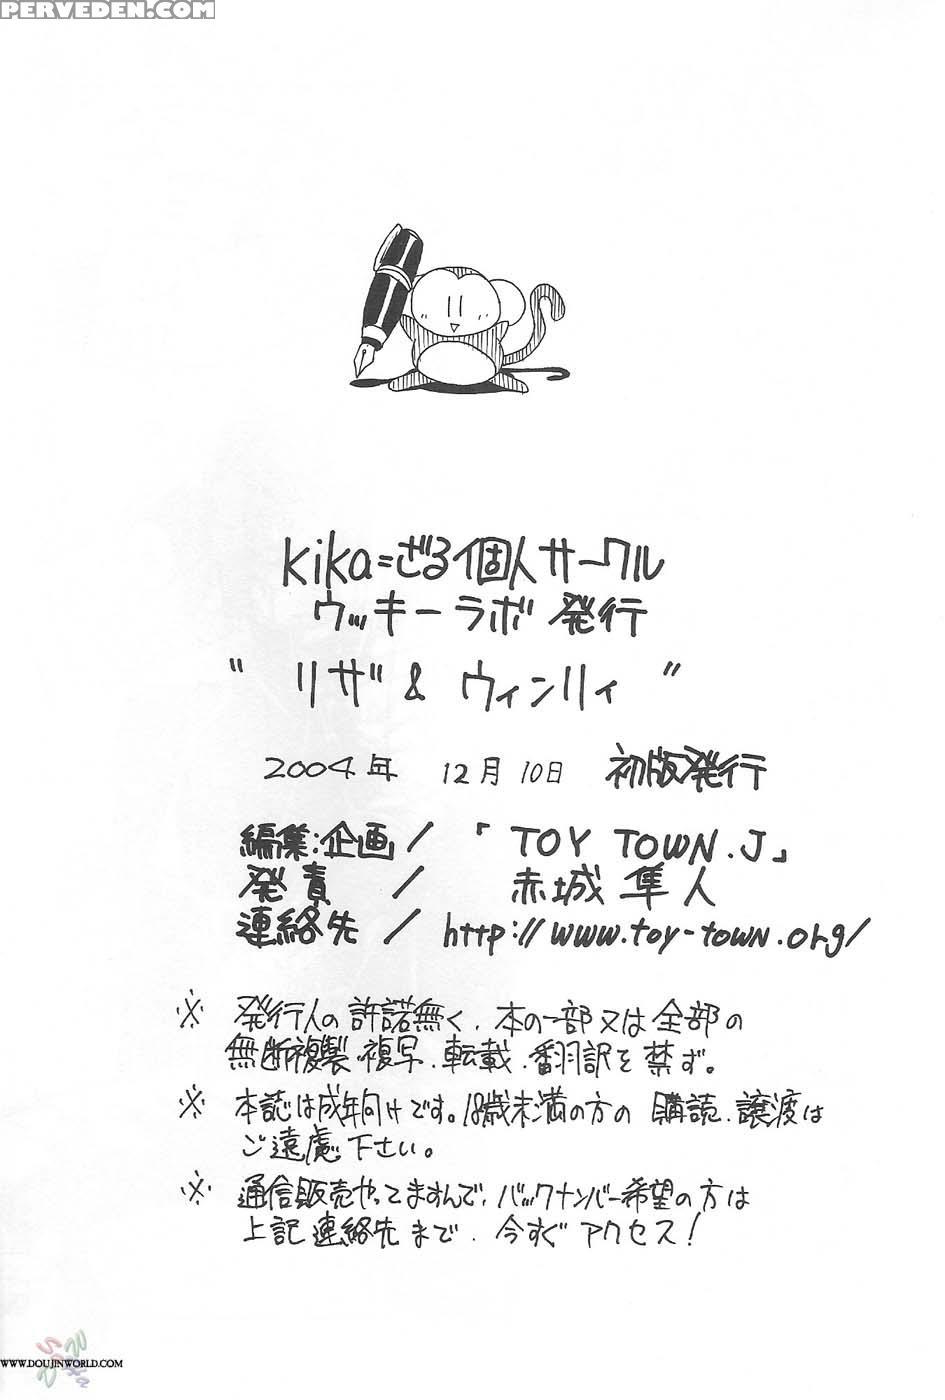 PERVEDEN.COM
Kika=ざる個人サークル
ウッキーラボ 発行
" リザ & ウィンリィ "
2004年 12月 10日 初版発行
編集:企画 / 「TOY TOWN.J」
発責 / 赤城 隼人
連絡先 / http://www.toy-town.org/
※ 発行人の許諾無く、本の一部又は全部の
無断複製・複写、転載、翻訳を禁ず。
※ 本誌は成年向けです。18歳未満の方の 購読、譲渡は
ご遠慮下さい。
※ 通信販売やってますんで、バックナンバー希望の方は
上記 連絡先まで、今すぐアクセス!
WWW.DOUJINWORLD.COM